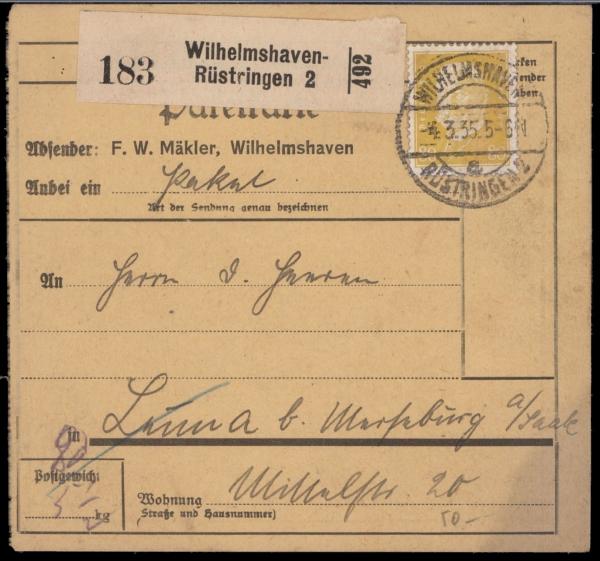 183 Wilhelmshaven-
Rüstringen 2 492
Paketkarte
WILHELMSHAVEN
-4.3.35.5-6N
a
RÜSTRINGEN 2
Absender: F. W. Mäkler, Wilhelmshaven
Anbei ein Paket
Art der Sendung genau bezeichnen
An Herrn D. Heeren
in Leuna b. Merseburg a/Saale
Postgewicht
kg
Wohnung Mittelstr. 20
Straße und Hausnummer)
50-